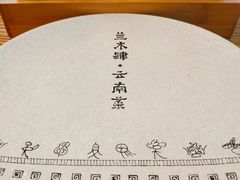 兰木肆·云南菜